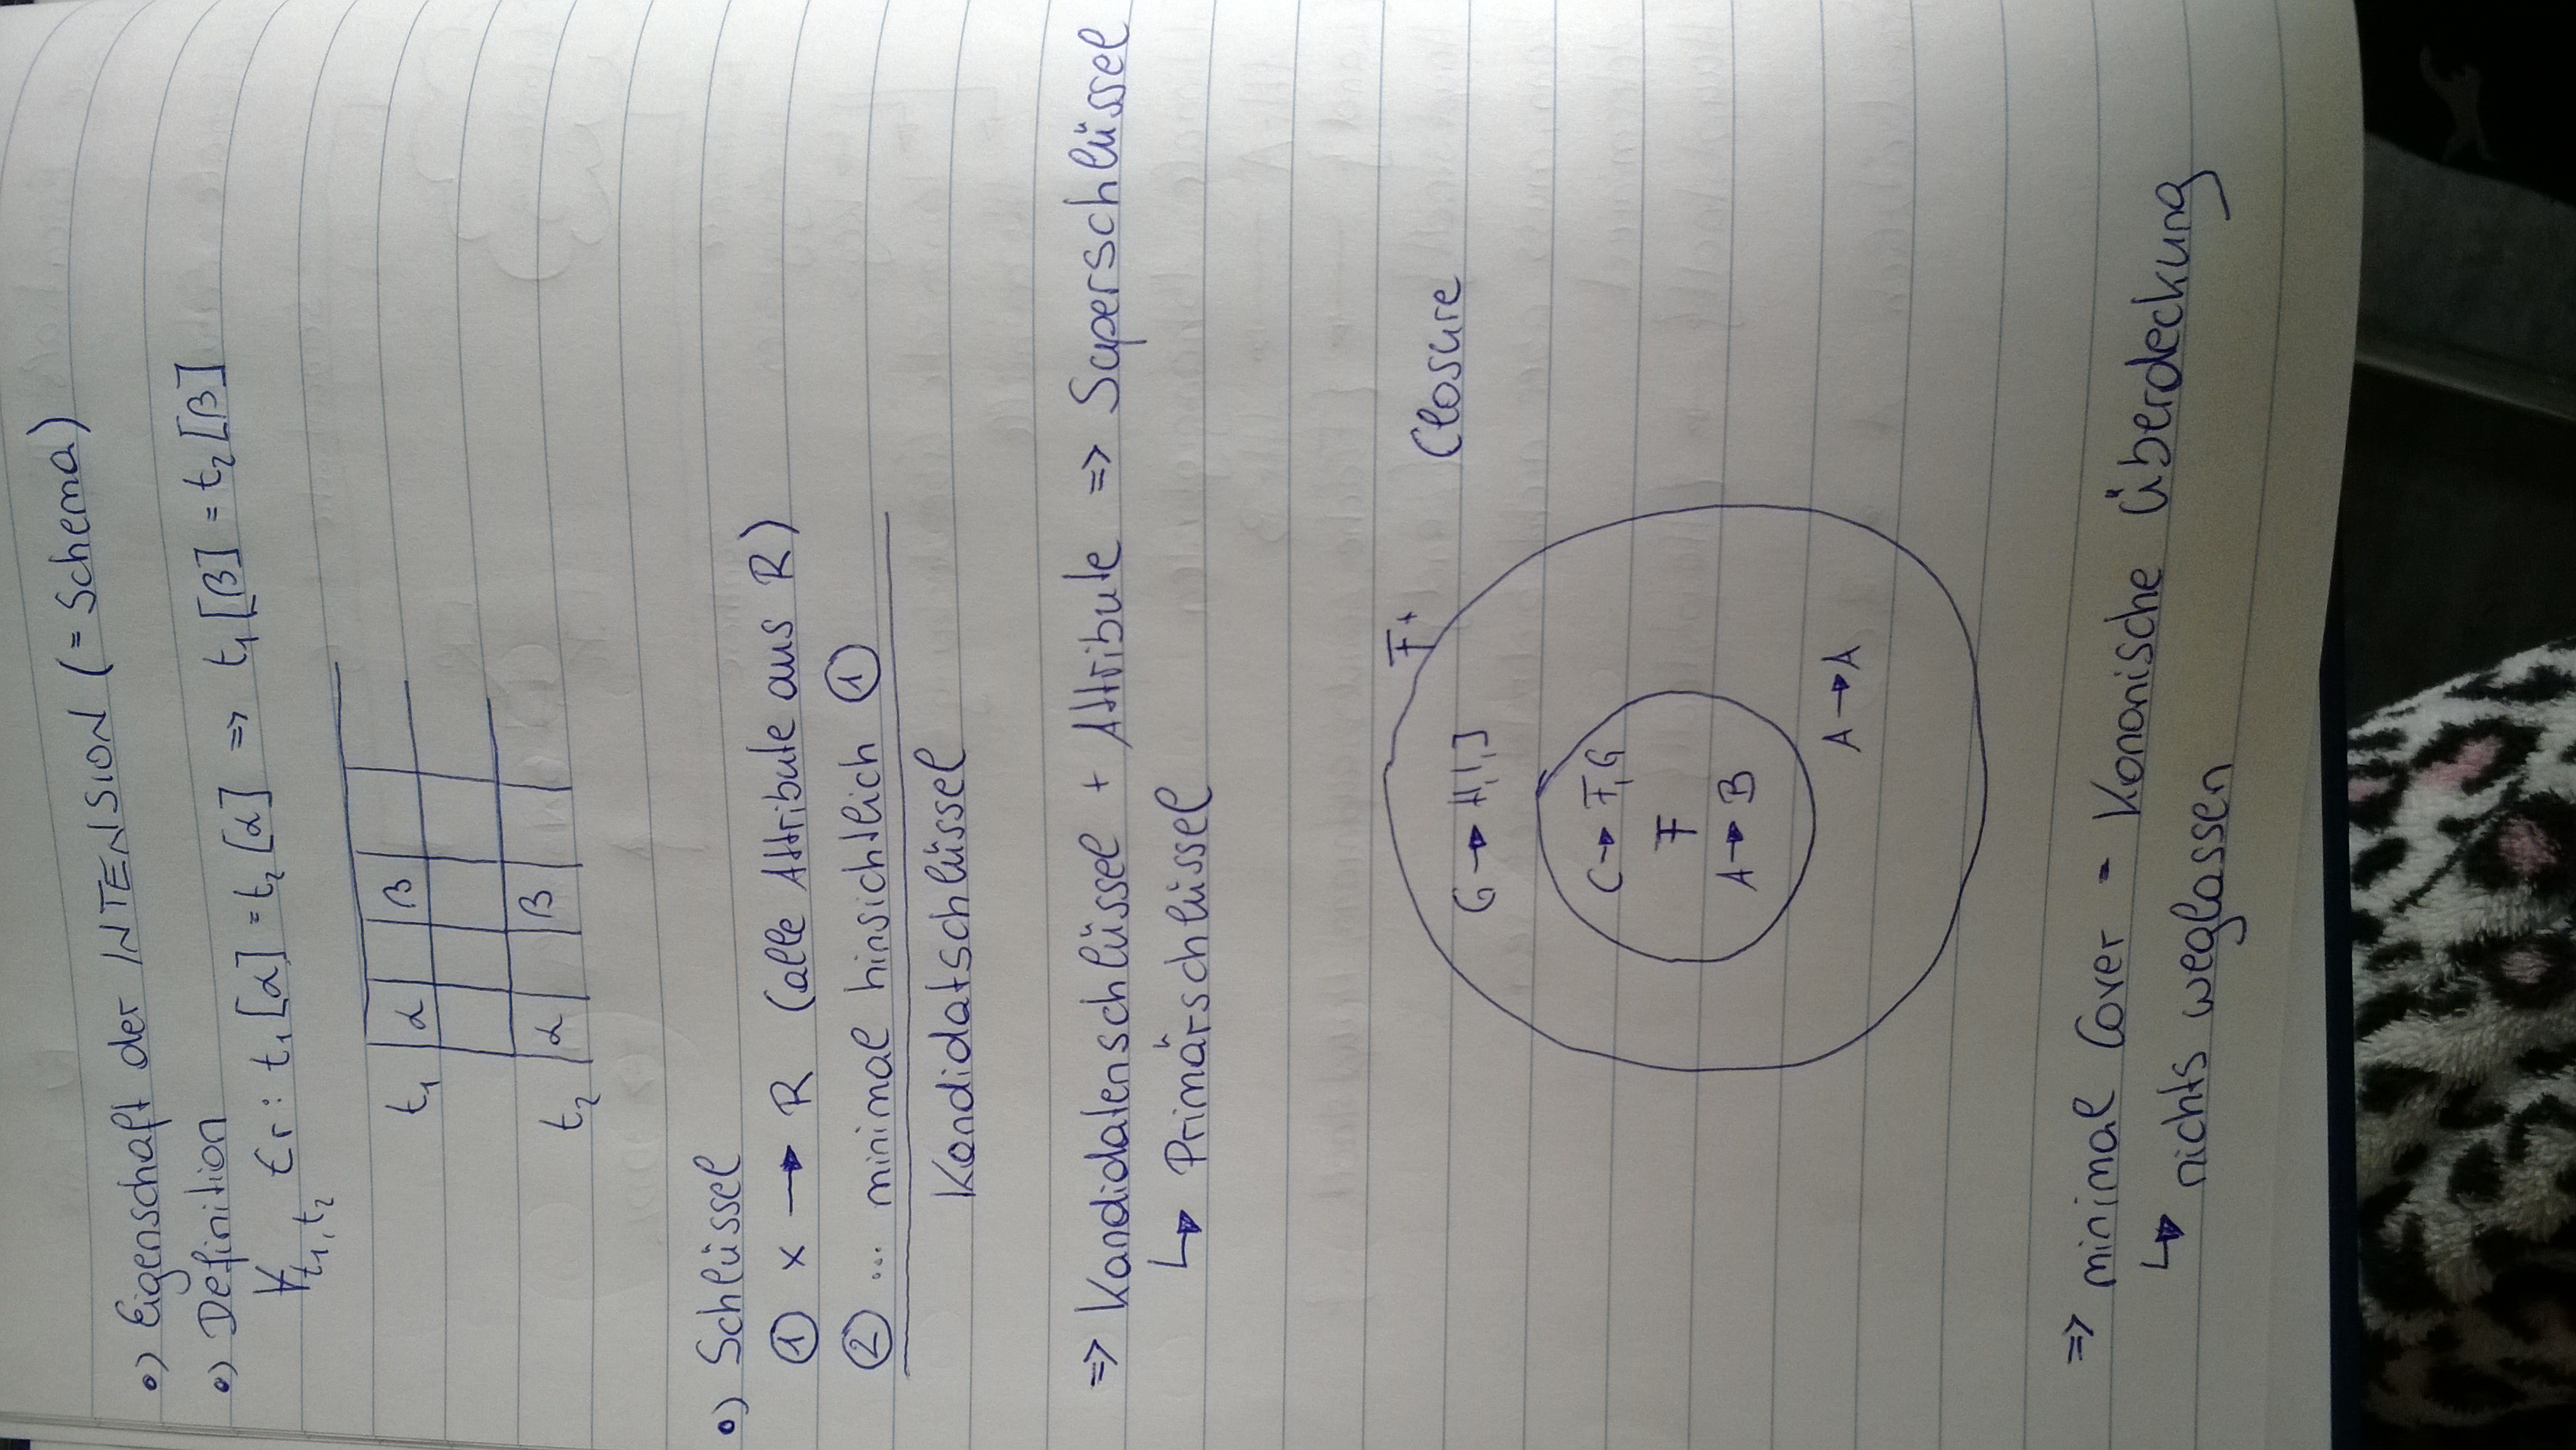 °) Eigenschaft der INTENSION (= Schema)
°) Definition
∀ t1, t2 ∈ r : t1[α] = t2[α] => t1[β] = t2[β]
t1 α β
t2 α β
°) Schlüssel
① x → R (alle Attribute aus R)
② ... minimal hinsichtlich ①
Kandidatschlüssel
=> Kandidatenschlüssel + Attribute => Superschlüssel
↳ Primärschlüssel
F+ Closure
G → H,I,J
C → F,G
F
A → B
A → A
=> minimal Cover - Kanonische Überdeckung
↳ nichts weglassen